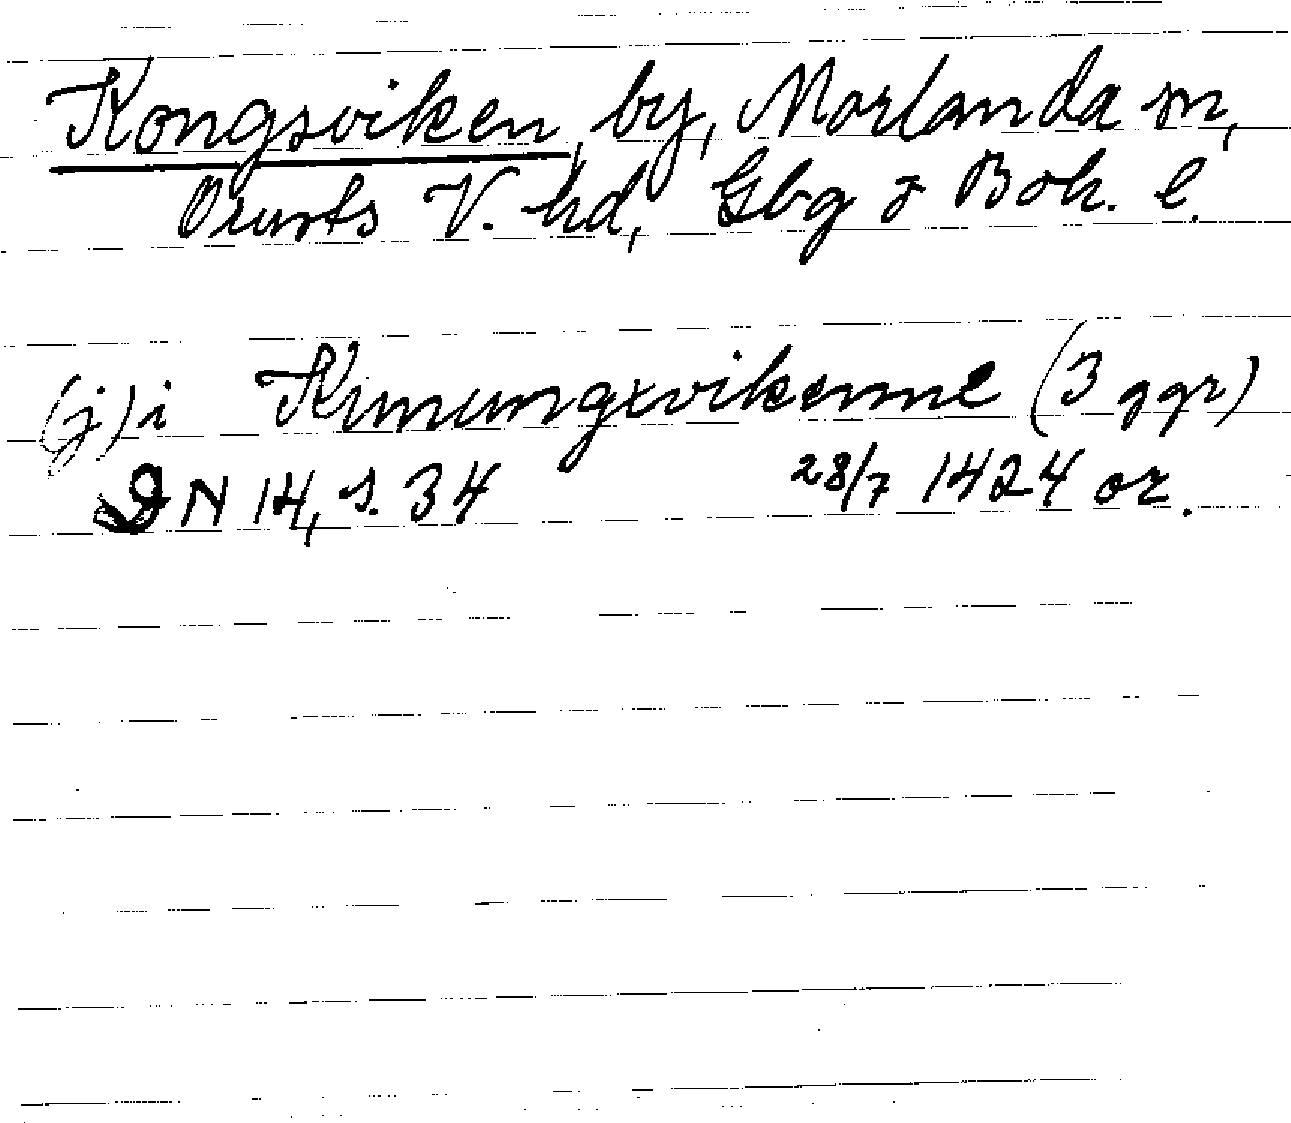 Kongsviken, by, Morlanda sn,
Orusts V. hd, Gbg o Boh. l.
(j) i Kunungxvikenne (3 ggr)
DN 14, s. 34 28/7 1424 or.